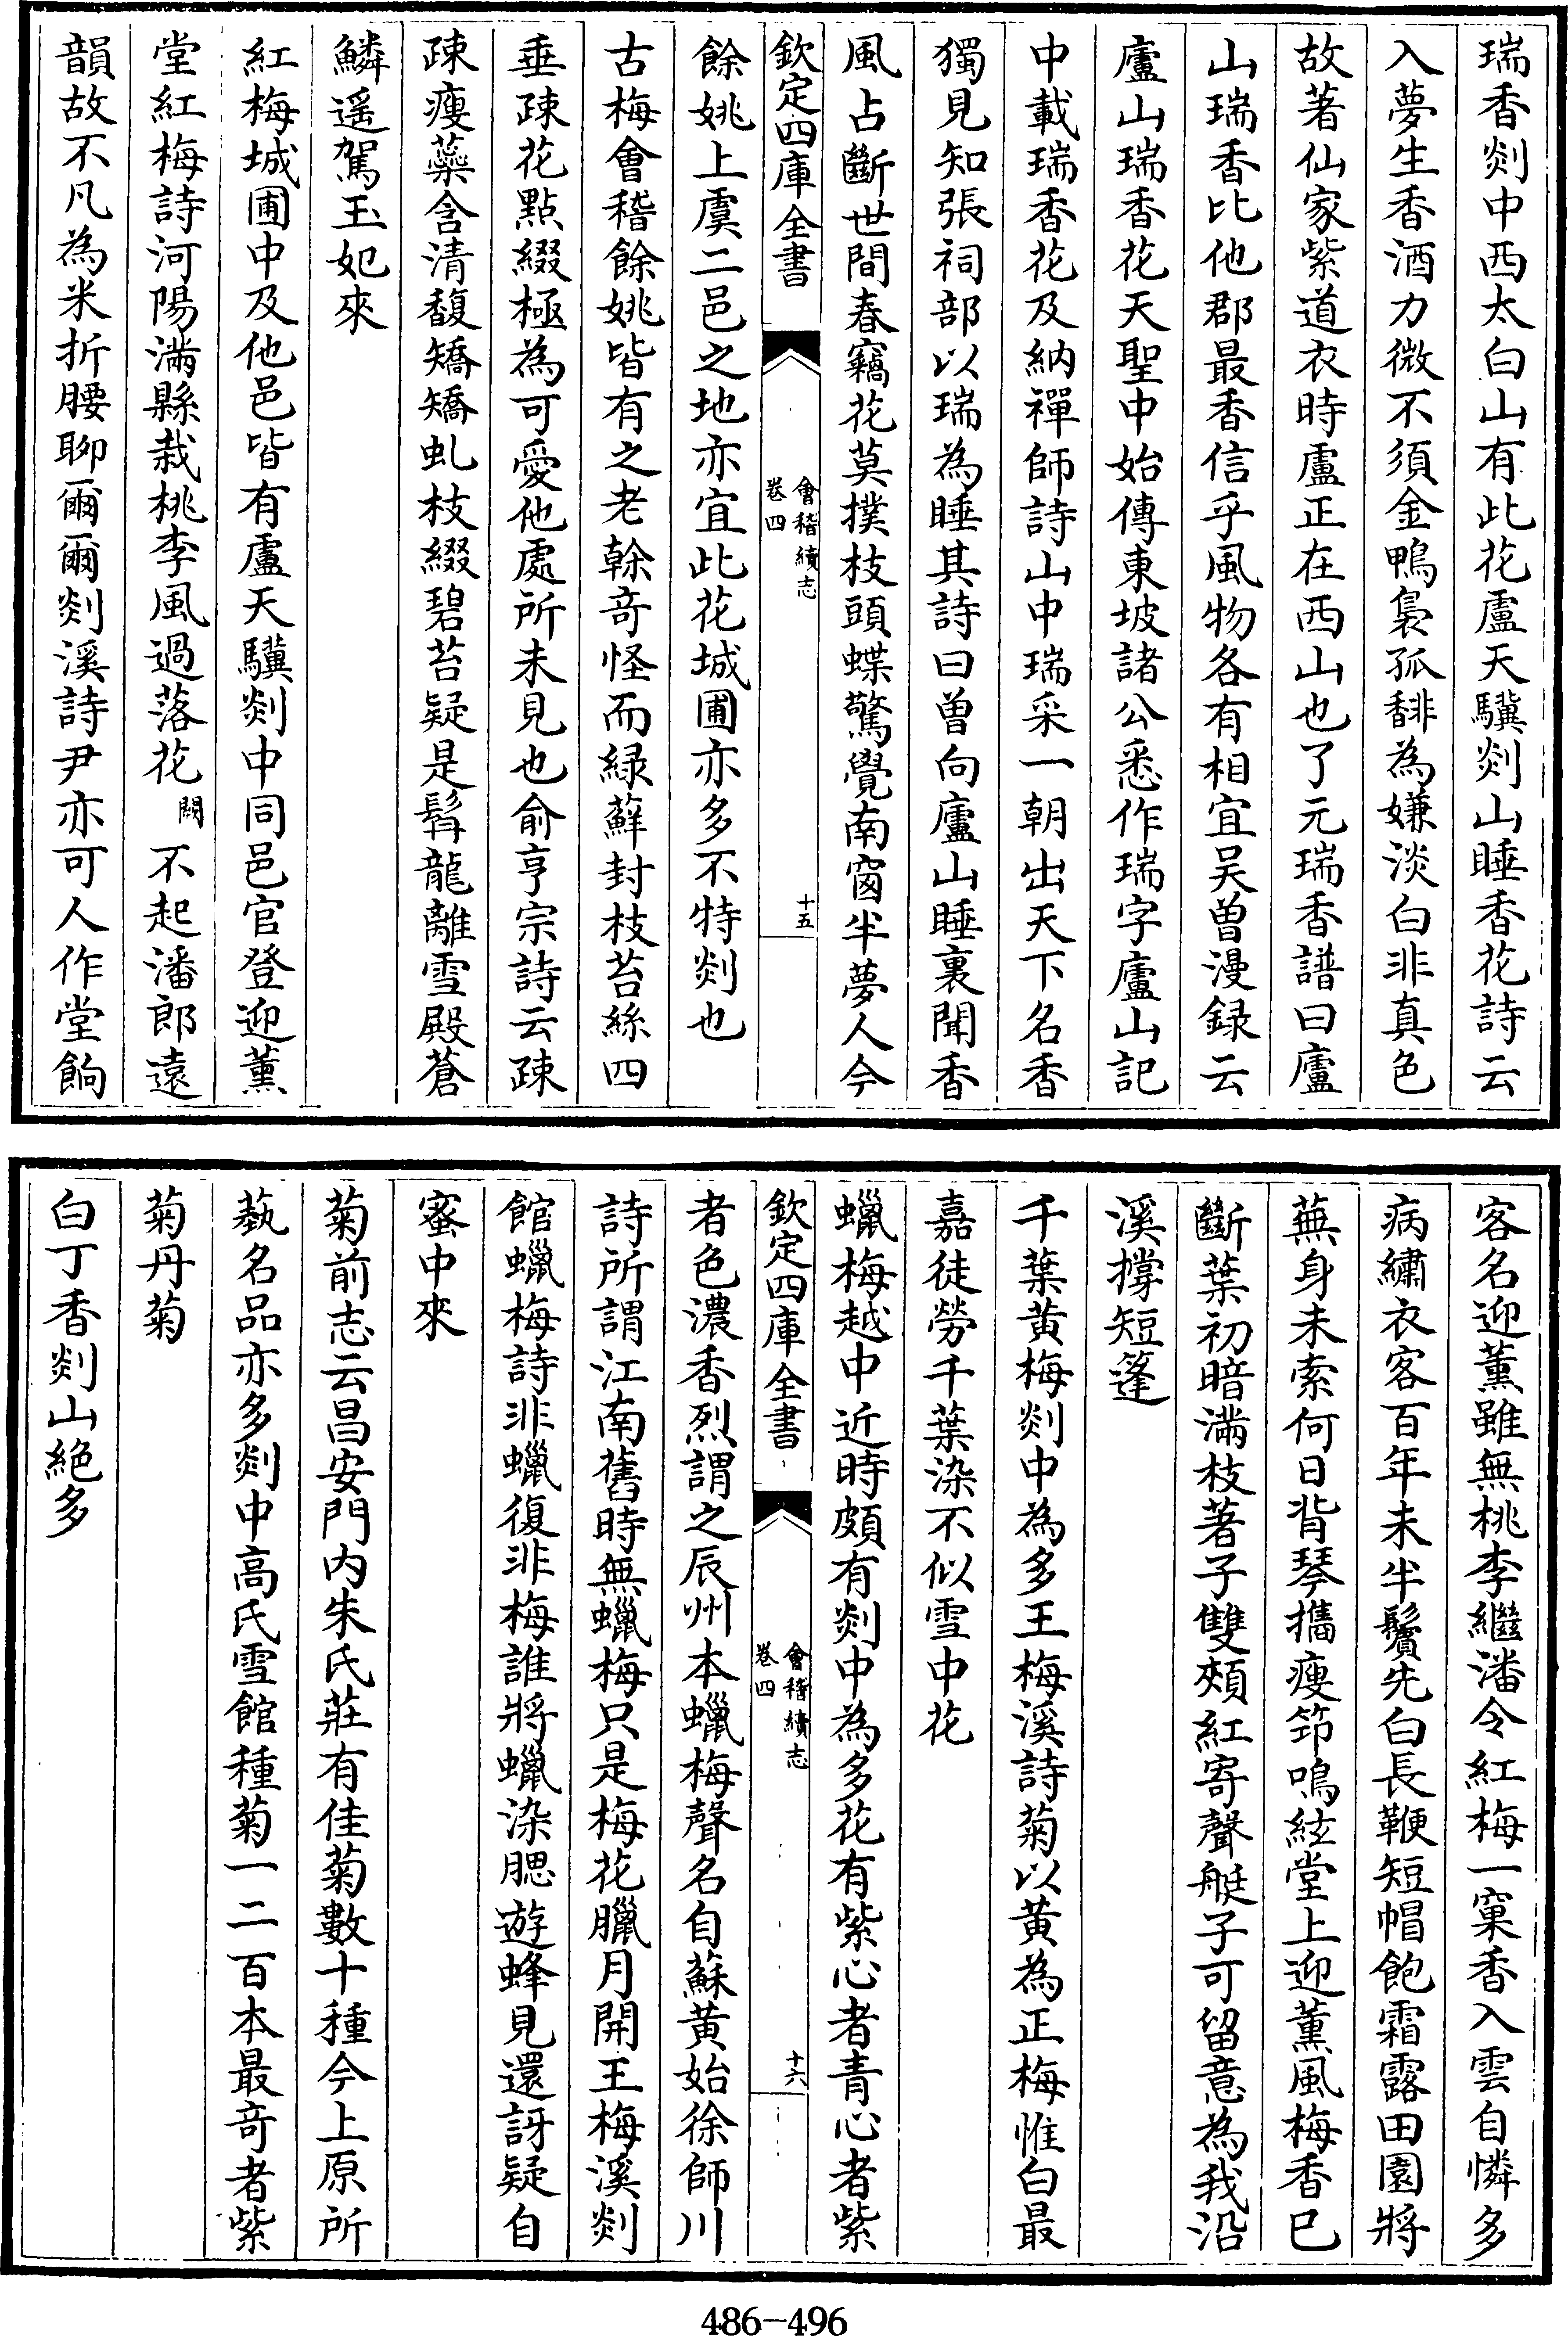 瑞香剡中西太白山有此花盧天驥剡山睡香花詩云
入夢生香酒力微不須金鴨裊孤馡為嫌淡白非真色
故著仙家紫道衣時盧正在西山也了元瑞香譜曰廬
山瑞香比他郡最香信乎風物各有相宜吳曽漫録云
廬山瑞香花天聖中始傳東坡諸公悉作瑞字廬山記
中載瑞香花及納禪師詩山中瑞采一朝出天下名香
獨見知張祠部以瑞為睡其詩曰曽向廬山睡裏聞香
風占斷世間春竊花莫撲枝頭蝶驚覺南窗半夢人今
欽定四庫全書
會稽續志
卷四
十五
餘姚上虞二邑之地亦宜此花城圃亦多不特剡也
古梅會稽餘姚皆有之老榦竒怪而緑蘚封枝苔絲四
垂疎花點綴極為可愛他處所未見也俞亨宗詩云疎
疎瘦蘂含清馥矯矯虬枝綴碧苔疑是髯龍離雪殿蒼
鱗遥駕玉妃來
紅梅城圃中及他邑皆有盧天驥剡中同邑官登迎薫
堂紅梅詩河陽滿縣栽桃李風過落花闕不起潘郎遠
韻故不凡為米折腰聊爾爾剡溪詩尹亦可人作堂餉
客名迎薫雖無桃李繼潘令紅梅一窠香入雲自憐多
病繡衣客百年未半鬢先白長鞭短帽飽霜露田園將
蕪身未索何日背琴攜瘦笻鳴絃堂上迎薫風梅香已
斷葉初暗滿枝著子雙頰紅寄聲艇子可留意為我沿
溪撐短篷
千葉黄梅剡中為多王梅溪詩菊以黄為正梅惟白最
嘉徒勞千葉染不似雪中花
蠟梅越中近時頗有剡中為多花有紫心者青心者紫
欽定四庫全書
會稽續志
卷四
十六
者色濃香烈謂之辰州本蠟梅聲名自蘇黄始徐師川
詩所謂江南舊時無蠟梅只是梅花臘月開王梅溪剡
館蠟梅詩非蠟復非梅誰將蠟染腮遊蜂見還訝疑自
蜜中來
菊前志云昌安門内朱氏莊有佳菊數十種今上原所
蓺名品亦多剡中高氏雪館種菊一二百本最竒者紫
菊丹菊
白丁香剡山絶多
486-496